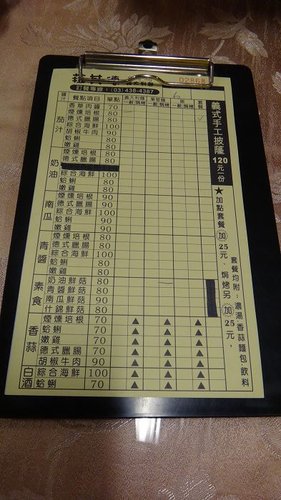 02868
訂餐專線：(03)438-4387
餐點項目 單點
茄汁
香草肉醬 70
煙燻培根 80
德式臘腸 80
綜合海鮮 90
胡椒牛肉 90
嫩雞 80
奶油
煙燻培根 70
綜合海鮮 90
蛤蜊 70
嫩雞 80
南瓜
煙燻培根 80
德式臘腸 80
綜合海鮮 90
蛤蜊 80
青醬
煙燻培根 80
德式臘腸 90
綜合海鮮 100
蛤蜊 80
嫩雞 90
素食
奶油鮮菇 80
青醬鮮菇 90
南瓜鮮菇 90
什錦鮮菇 80
香蒜
煙燻培根 70 ▲ ▲ ▲
蛤蜊 70 ▲ ▲ ▲
嫩雞 80 ▲ ▲ ▲
德式臘腸 80 ▲ ▲ ▲
胡椒牛肉 90 ▲ ▲ ▲
白酒
綜合海鮮 100 ▲ ▲ ▲
蛤蜊 70 ▲ ▲ ▲
義式手工披薩 120元/份
★加點套餐加25元
焗烤另加25元。
套餐均附：濃湯 香蒜麵包 飲料